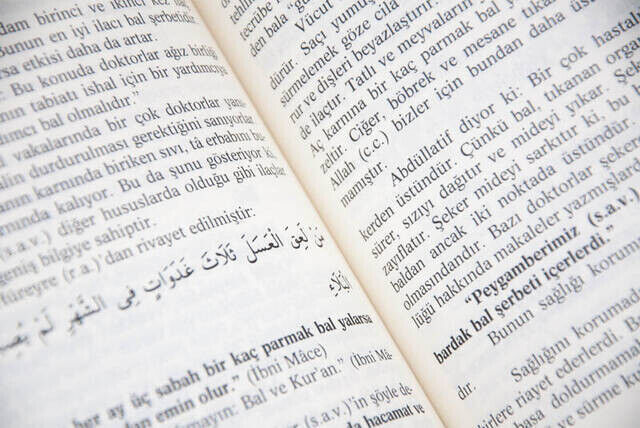 dam birinci ve ikinci kez
Bunun en iyi ilacı bal şerbetidir.
rsa etkisi daha da artar.
Bu konuda doktorlar ağız birliği
nın tabiatı ishal için bir yardımcıya
ımcı bal olmalıdır."
vakalarında bir çok doktorlar yanı
alin durdurulması gerektiğini sanıyorlar.
anın karnında biriken sıvı, tâ erbabını bu
ında kalıyor. Bu da şunu gösteriyor ki,
(s.a.v.) diğer hususlarda olduğu gibi ilaçlar
geniş bilgiye sahiptir.
füreyre (r.a.)'dan rivayet edilmiştir:
مَنْ لَعِقَ الْعَسَلَ ثَلَاثَ غَدَوَاتٍ فِي الشَّهْرِ لَمْ
الْبَلَاءِ
her ay üç sabah bir kaç parmak bal yalarsa
dan emin olur." (İbni Mâce)
mayın: Bal ve Kur'an." (İbni Mâ-
(s.a.v.)'in şöyle de-
da hacamat ve
tecrübe
den bala "gü
Vücut
dürür. Saçı yumuş
sürmelemek göze cila
rur ve dişleri beyazlaştırır.
de ilaçtır. Tatlı ve meyvaların
Aç karnına bir kaç parmak bal y
zeltir. Ciğer, böbrek ve mesane tıkan
Allah (c.c.) bizler için bundan daha üst
mamıştır.
Abdüllatif diyor ki: Bir çok hasta
kerden üstündür. Çünkü bal, tıkanan orga
sürer, sızıyı dağıtır ve mideyi yıkar. Şeke
zayıflatır. Şeker mideyi sarkıtır ki, bu
baldan ancak iki noktada üstündür.
olmasındandır. Bazı doktorlar şeker
lüğü hakkında makaleler yazmışlar
"Peygamberimiz (s.a.v.)
bardak bal şerbeti içerlerdi."
Bunun sağlığı korum
dır.
Sağlığını koruma
kirlere riayet ederlerdi. B
basa doldurmama
ve sürme k